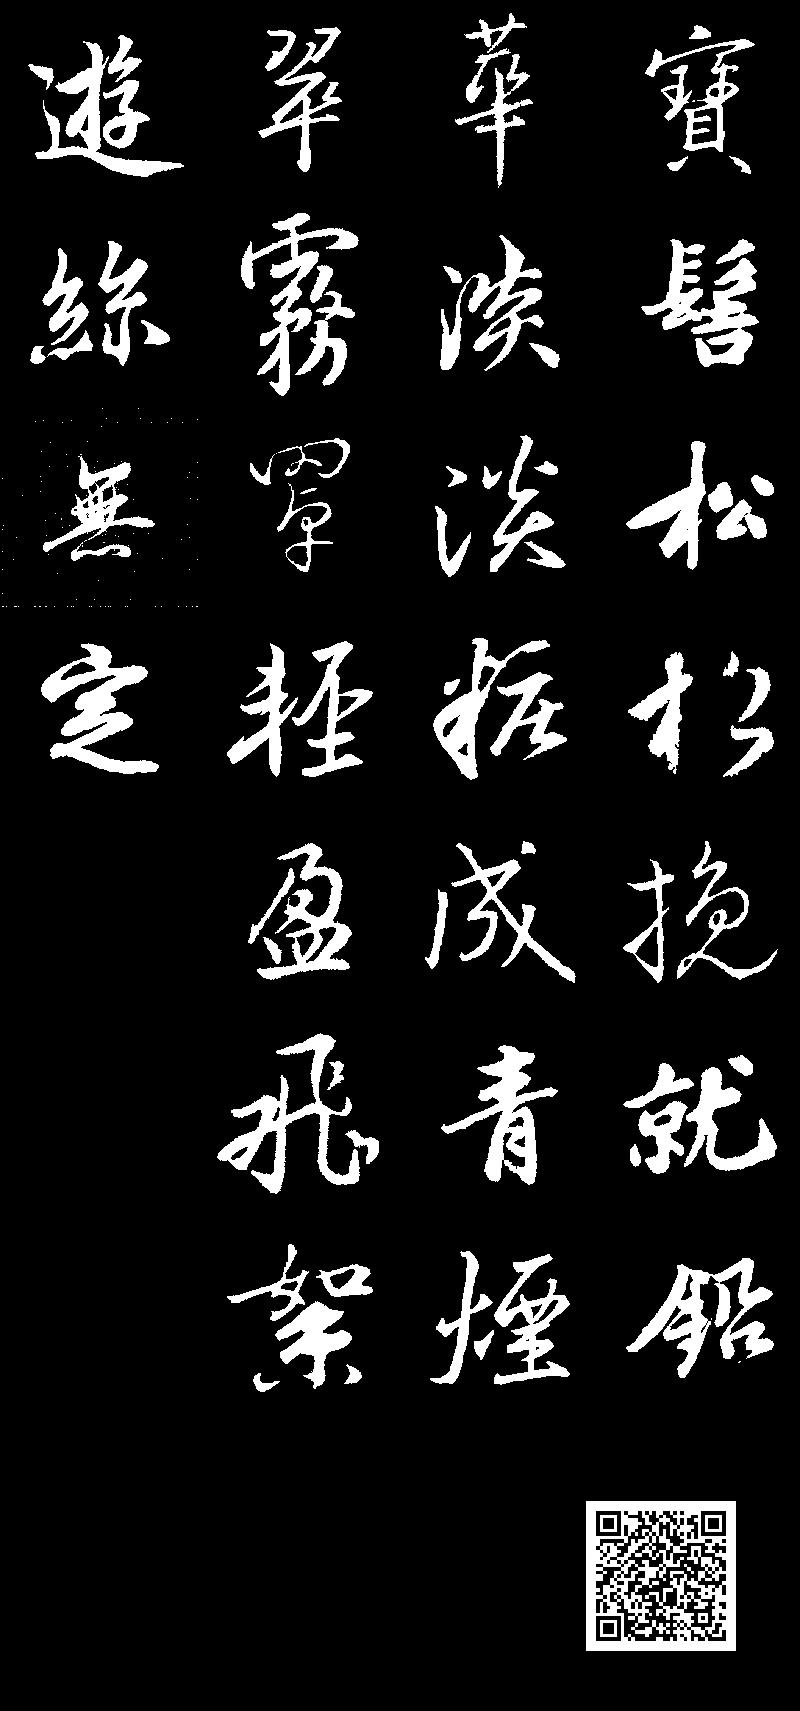 寶髻松松挽就鉛
華淡淡粧成青煙
翠霧罩輕盈飛絮
遊絲無定